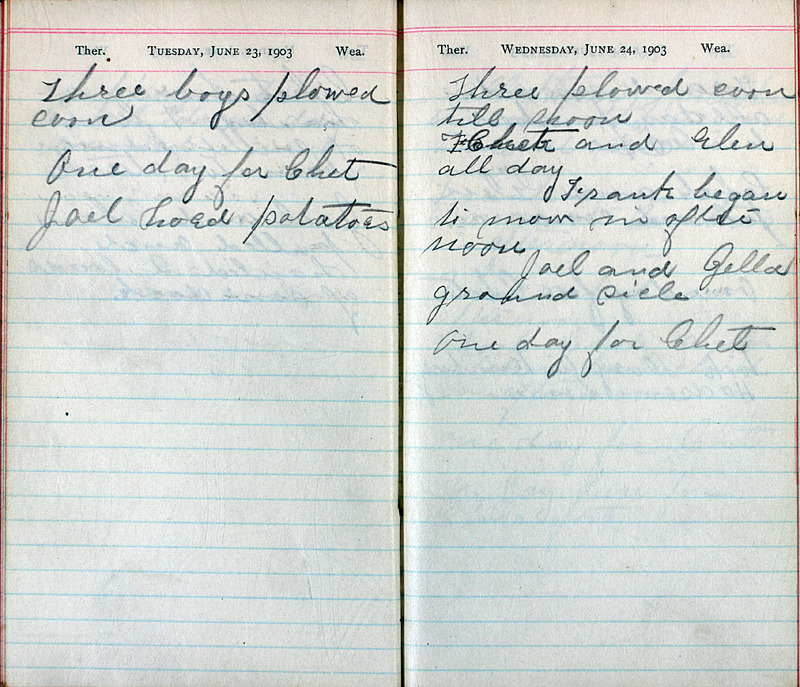 Ther. TUESDAY, JUNE 23, 1903 Wea.
Three boys plowed
corn
One day for Chet
Joel hoed potatoes
Ther. WEDNESDAY, JUNE 24, 1903 Wea.
Three plowed corn
till noon
Chet and Glen
all day
Frank began
to mow in after
noon
Joel and Zella
ground sicle
One day for Chet